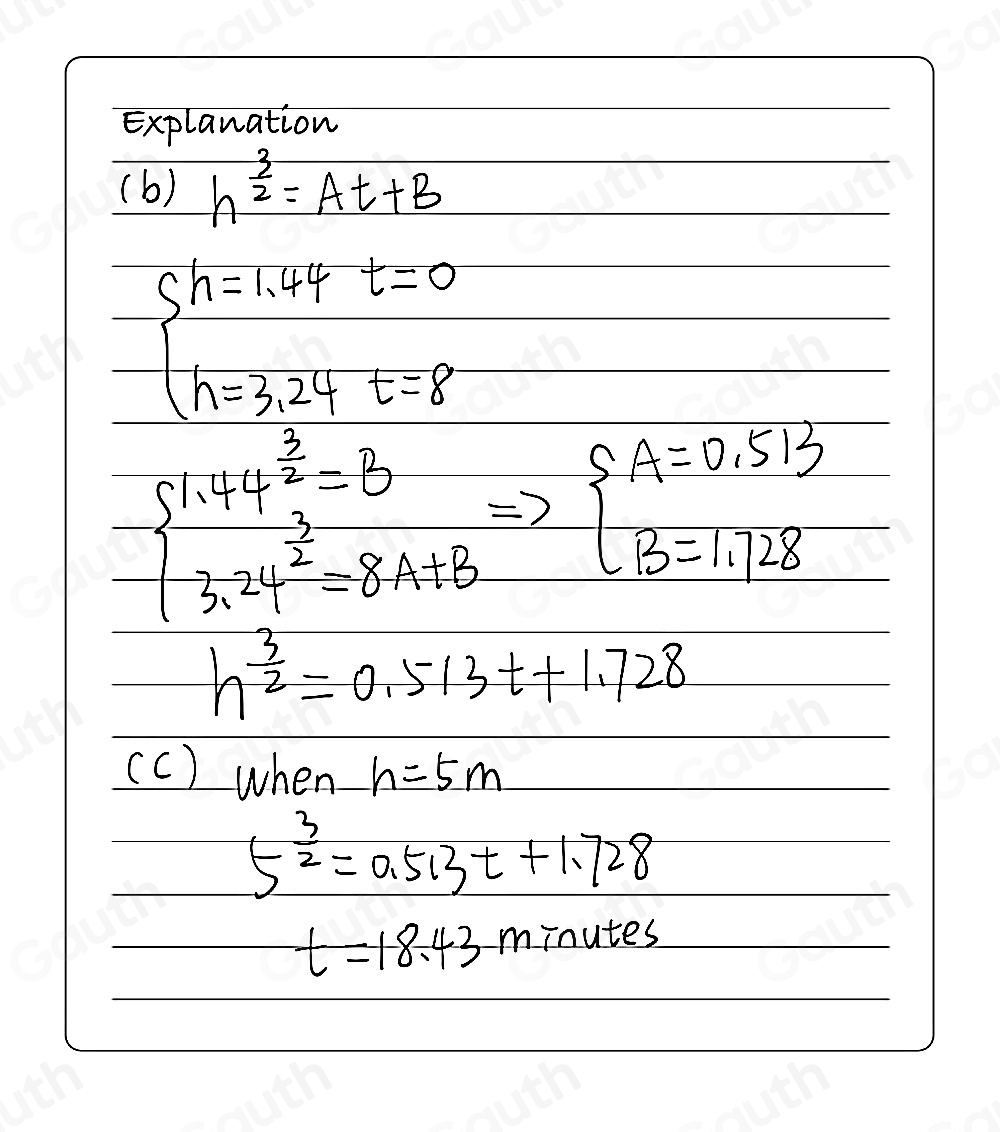 Explanation
(b) h^{3/2} = At+B
{h=1.44 t=0
h=3.24 t=8
{1.44^{3/2} = B => {A=0.513
3.24^{3/2} = 8A+B B=1.728
h^{3/2} = 0.513t+1.728
(c) when h=5m
5^{3/2} = 0.513t+1.728
t=18.43 minutes